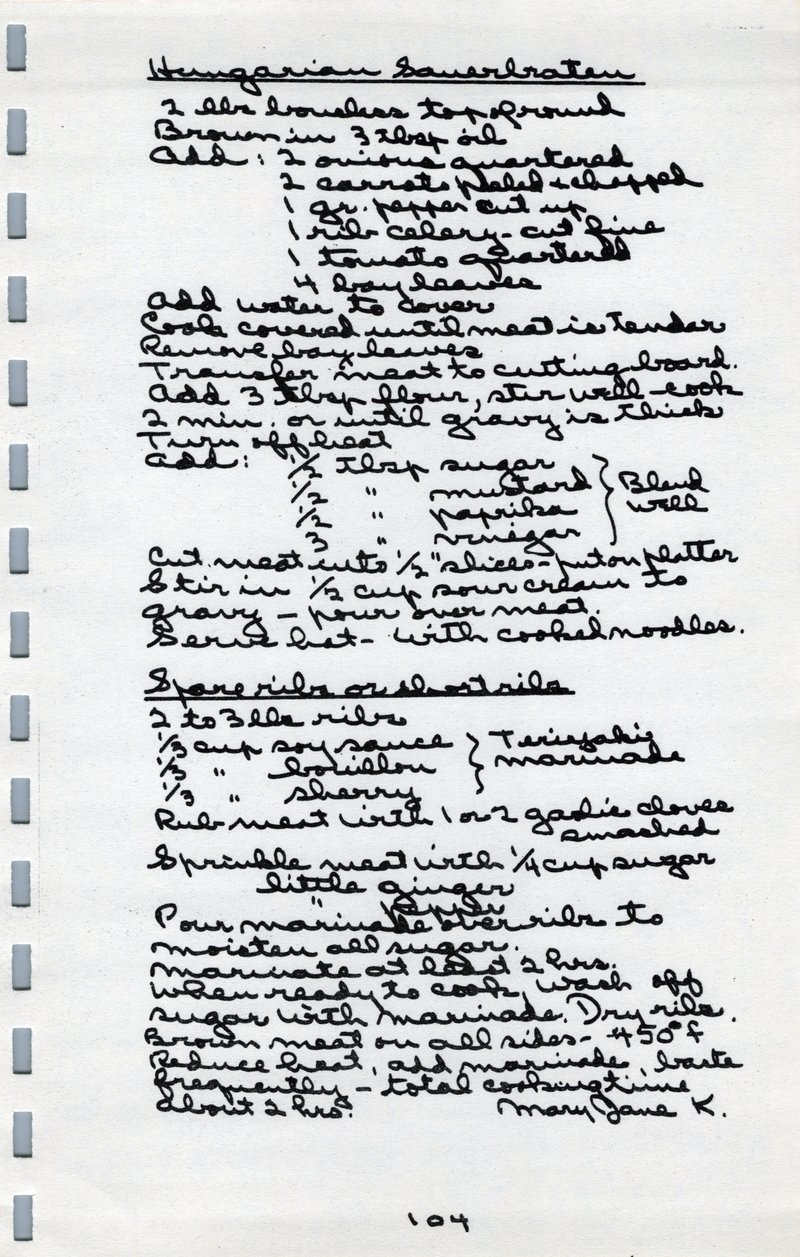 Hungarian Sauerbraten
2 lbs boneless top ground
Brown in 3 tbsp oil
Add: 2 onions quartered
2 carrots peeled + chopped
1 gr. pepper cut up
1 rib celery - cut fine
1 tomato quartered
4 bay leaves
Add water to cover
Cook covered until meat is tender
Remove bay leaves
Transfer meat to cutting board.
Add 3 tbsp flour, stir well - cook
2 min. or until gravy is thick
Turn off heat
Add: 1/2 tbsp sugar
1/2 " mustard } Blend
1/2 " paprika well
3 " vinegar
Cut meat into 1/2" slices - put on platter
Stir in 1/2 cup sour cream to
gravy - pour over meat.
Serve hot - with cooked noodles.
Spare ribs or short ribs
2 to 3 lbs ribs
1/3 cup soy sauce } Teriyaki
1/3 " bouillon marinade
1/3 " sherry
Rub meat with 1 or 2 garlic cloves
smashed
Sprinkle meat with 1/4 cup sugar
little ginger
" pepper
Pour marinade over ribs to
moisten all sugar.
Marinate at least 2 hrs.
When ready to cook, wash off
sugar with marinade. Dry ribs.
Brown meat on all sides - 450° f
Reduce heat, add marinade, baste
frequently - total cooking time
about 2 hrs. Mary Jane K.
104